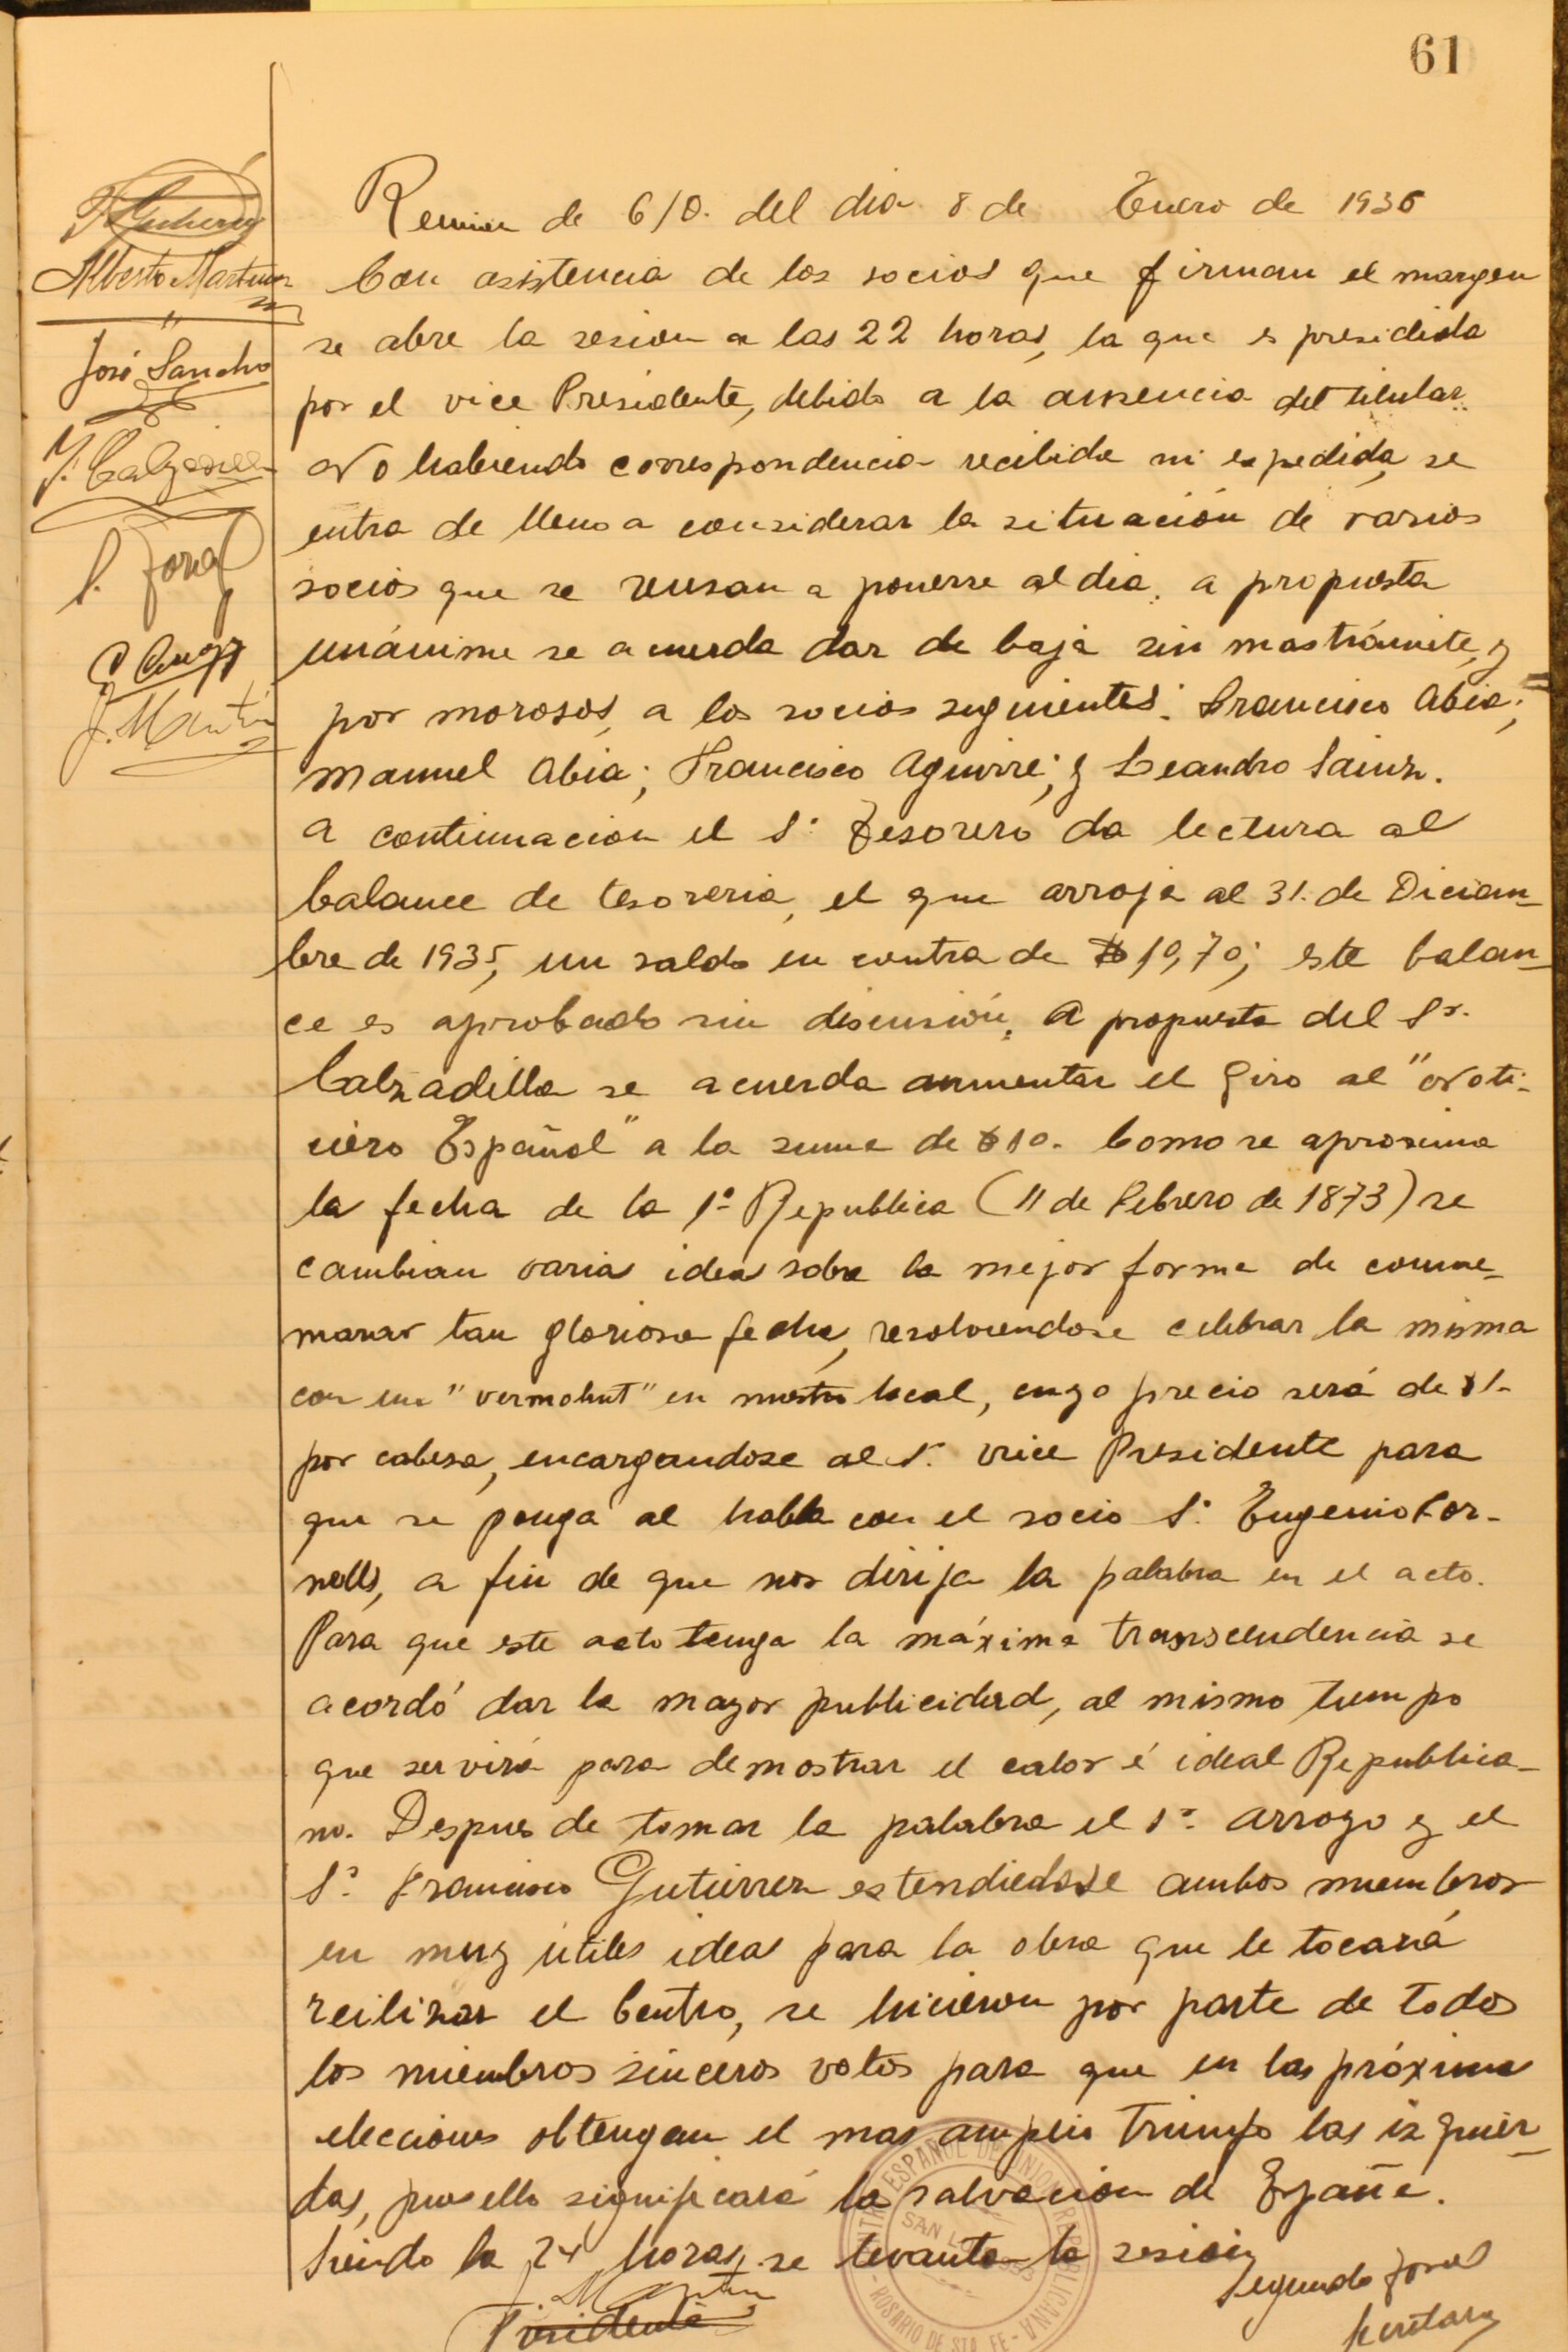 61
F Gutierrez
Alberto Martinez
José Sancho
J. Calzadilla
S. Foral
J. Martin
Reunion de C/D. del dia 8 de Enero de 1936
Con asistencia de los socios que firman el margen
se abre la sesion a las 22 horas, la que es presidida
por el vice Presidente, debido a la ausencia del titular.
No habiendo correspondencia recibida ni expedida, se
entra de lleno a considerar la situación de varios
socios que se reusan a ponerse al dia, a propuesta
unánime se acuerda dar de baja sin mas trámite, y
por morosos, a los socios siguientes: Francisco Abia;
Manuel Abia; Francisco Aguirre; y Leandro Sainz.
A continuacion el Sr. Tesorero da lectura al
balance de tesoreria, el que arroja al 31. de Diciem-
bre de 1935, un saldo en contra de $ 10,70; este balan-
ce es aprobado sin discusión. A propuesta del Sr.
Calzadilla se acuerda aumentar el giro al "Noti-
ciero Español" a la suma de $ 10. Como se aproxima
la fecha de la 1ª Republica (11 de Febrero de 1873) se
cambian varias ideas sobre la mejor forma de conme-
marar tan gloriosa fecha, resolviendose celebrar la misma
con un "vermohut" en nuestro local, cuyo precio será de $1.-
por cabesa, encargandose al Sr. vice Presidente para
que se ponga al habla con el socio Sr. Eugenio For-
nells, a fin de que nos dirija la palabra en el acto.
Para que este acto tenga la máxima transcendencia se
acordó dar la mayor publicidad, al mismo tiempo
que servirá para demostrar el calor é ideal Republica-
no. Despues de tomar la palabra el Sr. Arroyo y el
Sr. Francisco Gutierrez estendiedose ambos miembros
en muy útiles ideas para la obra que le tocará
reilizar el Centro, se hicieron por parte de todos
los miembros sinceros votos para que en las próximas
elecciones obtengan el mas amplio triunfo las izquier-
das, pues ello significará la salvacion de España.
Siendo la 24 horas, se levanta la sesion
J. Martin
Presidente
Segundo Foral
Secretario
CENTRO ESPAÑOL DE UNION REPUBLICANA
ROSARIO DE STA. FE